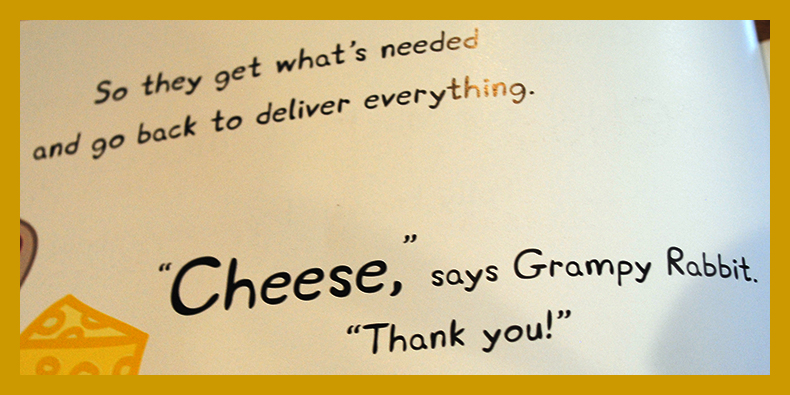 So they get what's needed
and go back to deliver everything.
“Cheese,” says Grampy Rabbit.
“Thank you!”